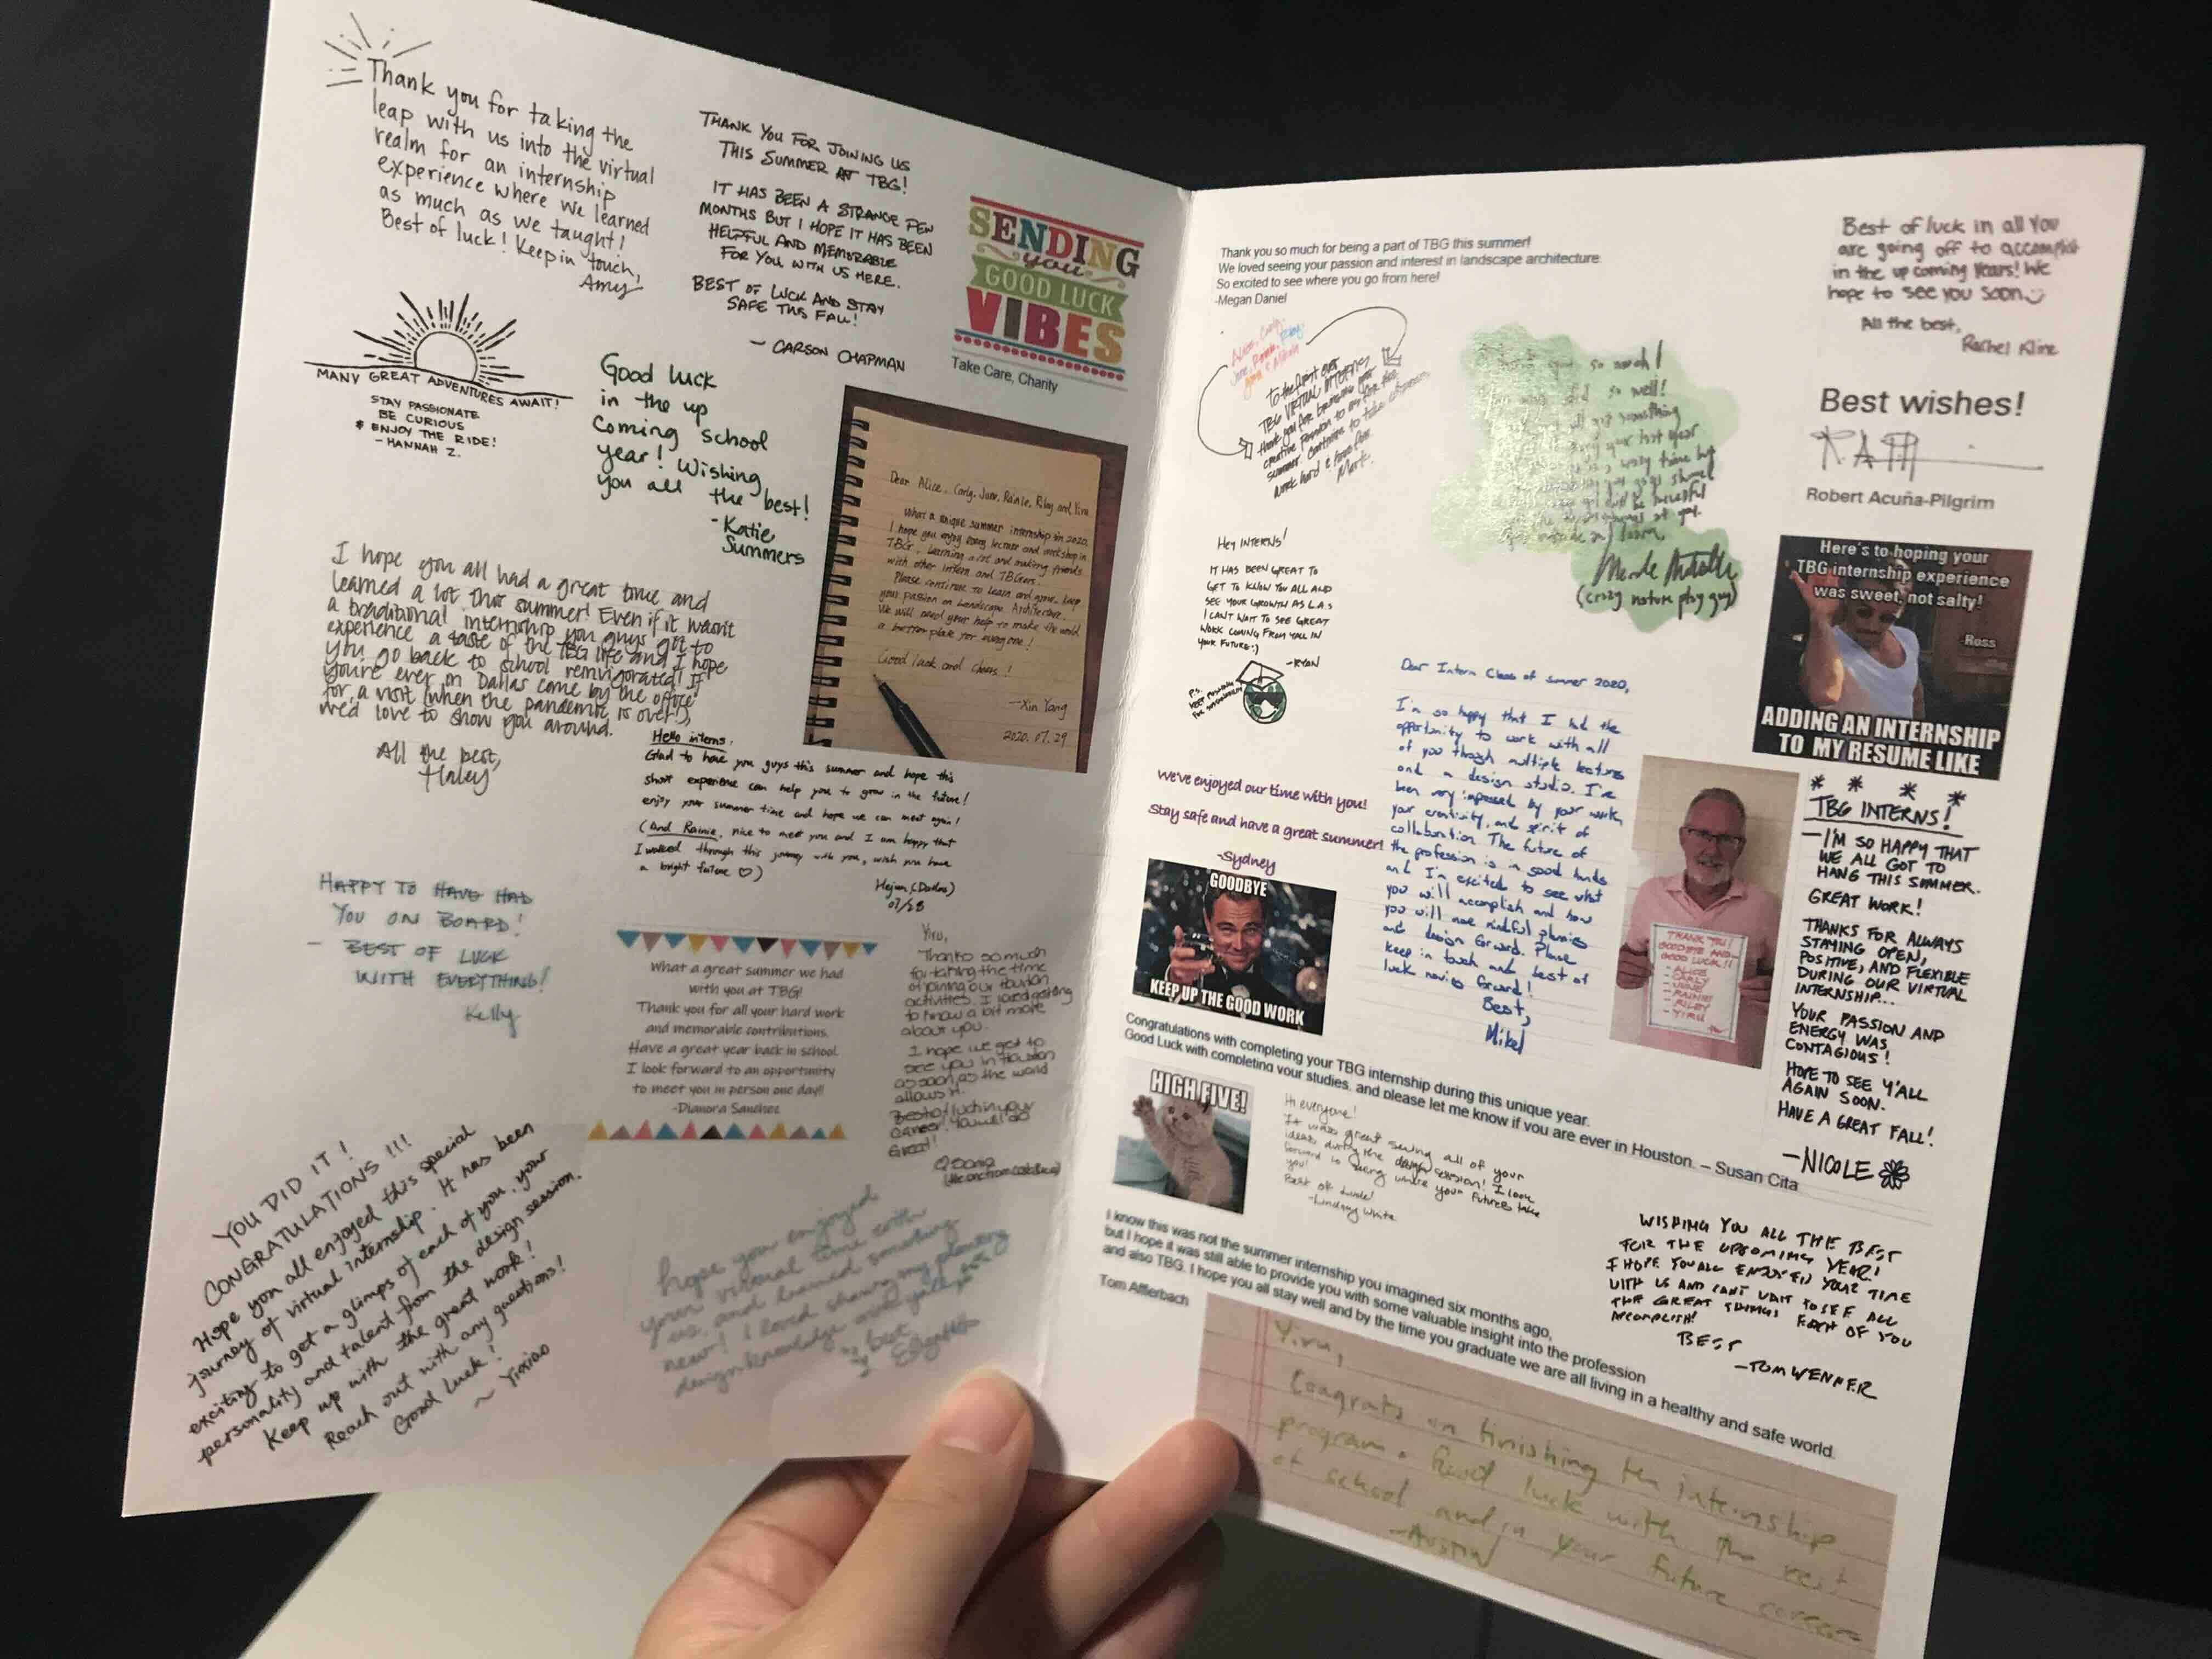 Thank you for taking the
leap with us into the virtual
realm for an internship
experience where we learned
as much as we taught!
Best of luck! Keep in touch,
Amy
THANK YOU FOR JOINING US
THIS SUMMER AT TBG!
IT HAS BEEN A STRANGE FEW
MONTHS BUT I HOPE IT HAS BEEN
HELPFUL AND MEMORABLE
FOR YOU WITH US HERE.
BEST OF LUCK AND STAY
SAFE THIS FALL!
- CARSON CHAPMAN
SENDING
you
GOOD LUCK
VIBES
Take Care, Charity
MANY GREAT ADVENTURES AWAIT!
STAY PASSIONATE
BE CURIOUS
& ENJOY THE RIDE!
- HANNAH Z.
Good luck
in the up
coming school
year! Wishing
you all the best!
- Katie
Summers
Dear Alice, Carly, June, Rainie, Riley and Yiru
What a unique summer internship in 2020.
I hope you enjoy every lecture and workshop in
TBG. Learning a lot and making friends
with other intern and TBGers.
Please continue to learn and grow. Keep
your passion on Landscape Architecture.
We will need your help to make the world
a better place for everyone!
Good luck and cheers!
- Xin Yang
2020. 07. 29
I hope you all had a great time and
learned a lot this summer! Even if it wasn't
a traditional internship you guys got to
experience a taste of the TBG life and I hope
you go back to school reinvigorated! If
you're ever in Dallas come by the office
for a visit (when the pandemic is over!),
we'd love to show you around.
All the best,
Haley
Hello interns,
Glad to have you guys this summer and hope this
short experience can help you to grow in the future!
enjoy your summer time and hope we can meet again!
(And Rainie, nice to meet you and I am happy that
I walked through this journey with you, wish you have
a bright future ♡)
(Dallas)
07/28
HAPPY TO HAVE HAD
YOU ON BOARD!
- BEST OF LUCK
WITH EVERYTHING!
Kelly
What a great summer we had
with you at TBG!
Thank you for all your hard work
and memorable contributions.
Have a great year back in school.
I look forward to an opportunity
to meet you in person one day!!
-Dianora Sanchez
Yiru,
Thanks so much
for taking the time
of joining our Houston
activities. I loved getting
to know a bit more
about you.
I hope we get to
see you in Houston
as soon as the world
allows it.
Best of luck in your
career! You will do
Great!
YOU DID IT!
CONGRATULATIONS!!!
Hope you all enjoyed this special
journey of virtual internship. It has been
exciting to get a glimps of each of you, your
personality and talent from the design session.
Keep up with the great work!
Reach out with any questions!
Good Luck!
~ Yixiao
hope you enjoyed
your virtual time with
us, and learned something
new! I loved sharing my planting
design knowledge with y'all
best
Elizabeth
Thank you so much for being a part of TBG this summer!
We loved seeing your passion and interest in landscape architecture.
So excited to see where you go from here!
-Megan Daniel
to the first ever
TBG VIRTUAL INTERNS
thank you for bringing your
creative passion to
summer. Continue to take
work hard & have fun
Mark.
so much!
so well!
something
your last year
crazy time but
(crazy nature play guy)
Best of luck in all you
are going off to accomplish
in the up coming years! We
hope to see you soon
All the best,
Rachel Kline
Best wishes!
Robert Acuña-Pilgrim
Here's to hoping your
TBG internship experience
was sweet, not salty!
-Ross
ADDING AN INTERNSHIP
TO MY RESUME LIKE
HEY INTERNS!
IT HAS BEEN GREAT TO
GET TO KNOW YOU ALL AND
SEE YOUR GROWTH AS L.A.S
I CAN'T WAIT TO SEE GREAT
WORK COMING FROM YOU IN
YOUR FUTURE :)
- RYAN
P.S.
KEEP PUSHING
FOR
We've enjoyed our time with you!
Stay safe and have a great summer!
-Sydney
GOODBYE
KEEP UP THE GOOD WORK
Dear Intern Class of Summer 2020,
I'm so happy that I had the
opportunity to work with all
of you though multiple lectures
and a design studio. I've
been very impressed by your work,
your creativity, and spirit of
collaboration. The future of
the profession is in good hands
and I'm excited to see what
you will accomplish and how
you will move mindful planning
and design forward. Please
keep in touch and best of
luck moving forward!
Best,
Mikel
THANK YOU!
GOODBYE AND
GOOD LUCK!!
- ALICE
- CARLY
- JUNE
- RAINIE
- RILEY
- YIRU
TBG INTERNS!
—I'M SO HAPPY THAT
WE ALL GOT TO
HANG THIS SUMMER.
GREAT WORK!
THANKS FOR ALWAYS
STAYING OPEN,
POSITIVE, AND FLEXIBLE
DURING OUR VIRTUAL
INTERNSHIP...
YOUR PASSION AND
ENERGY WAS
CONTAGIOUS!
HOPE TO SEE Y'ALL
AGAIN SOON.
HAVE A GREAT FALL!
—NICOLE
Congratulations with completing your TBG internship during this unique year.
Good Luck with completing your studies, and please let me know if you are ever in Houston. – Susan Cita
HIGH FIVE!
Hi everyone!
It was great seeing all of your
ideas during the design session! I look
forward to seeing where your futures take
you!
Best of Luck!
-Lindsay White
I know this was not the summer internship you imagined six months ago,
but I hope it was still able to provide you with some valuable insight into the profession
and also TBG. I hope you all stay well and by the time you graduate we are all living in a healthy and safe world.
Tom Afflerbach
WISHING YOU ALL THE BEST
FOR THE UPCOMING YEAR!
I HOPE YOU ALL ENJOYED YOUR TIME
WITH US AND CAN'T WAIT TO SEE ALL
THE GREAT THINGS EACH OF YOU
ACCOMPLISH!
BEST
- TOM WENNER
Yiru,
Congrats on finishing the internship
program. Good luck with the rest
of school and in your future career
-Austin